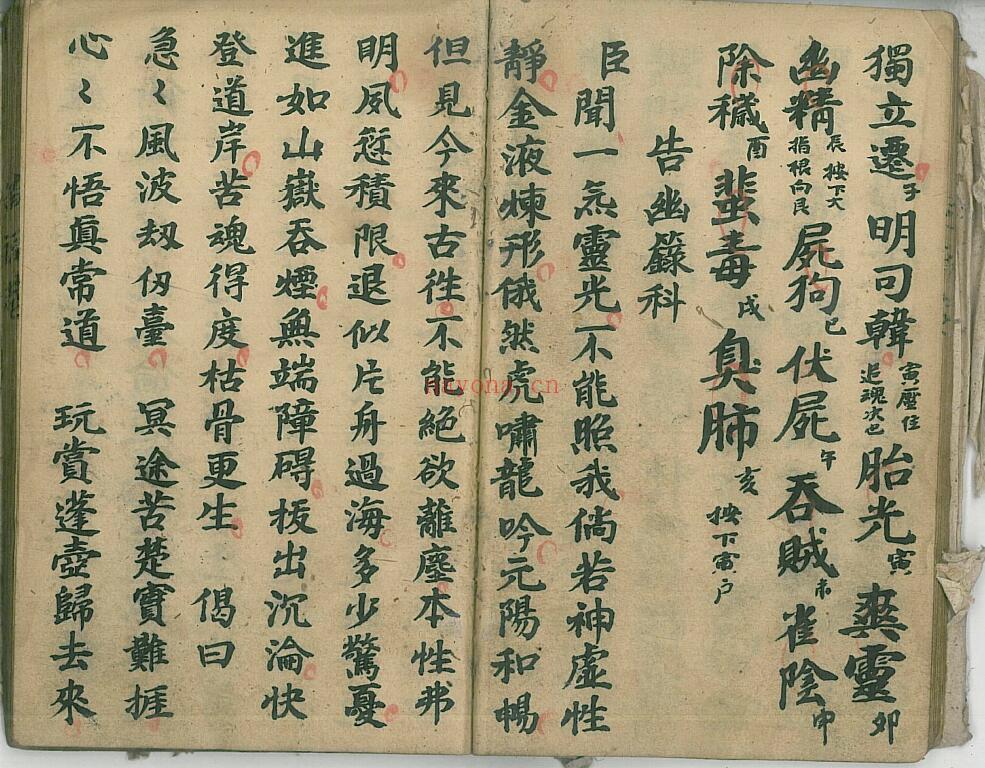 獨立遷子明司韓寅壓住追魂次也胎光寅爽靈卯
幽精辰按下大指根向艮屍狗巳伏屍午吞賊未雀陰申
除穢酉蜚毒戌臭肺亥按下寅户
告幽籙科
臣聞一炁靈光不能照我倘若神虛性
靜金液煉形俄然虎嘯龍吟元陽和暢
但見今來古徃不能絕欲離塵本性弗
明夙愆積限退似片舟過海多少驚憂
進如山嶽吞煙無端障碍拔出沉淪快
登道岸苦魂得度枯骨更生 偈曰
急〻風波刼仭臺 冥途苦楚實難捱
心〻不悟真常道 玩賞蓬壺歸去來
nayona.cn